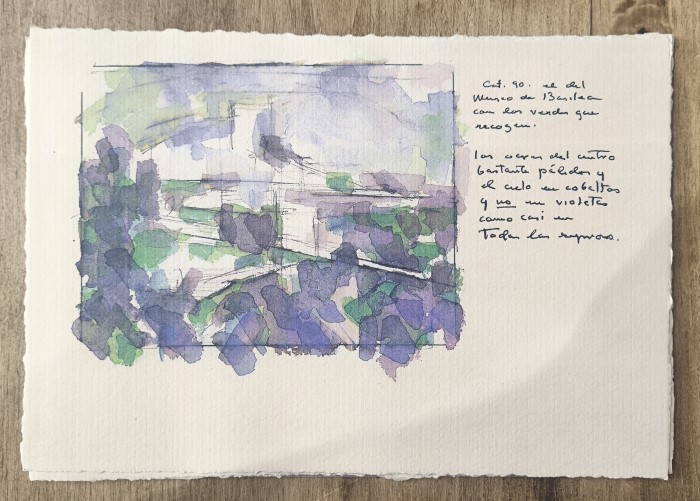 Cat. 90. es del
Museo de Basilea
con los verdes que
recogen.
los ocres del centro
bastante pálidos y
el cielo en cobaltos
y no en violetas
como casi en
todas las reprods.